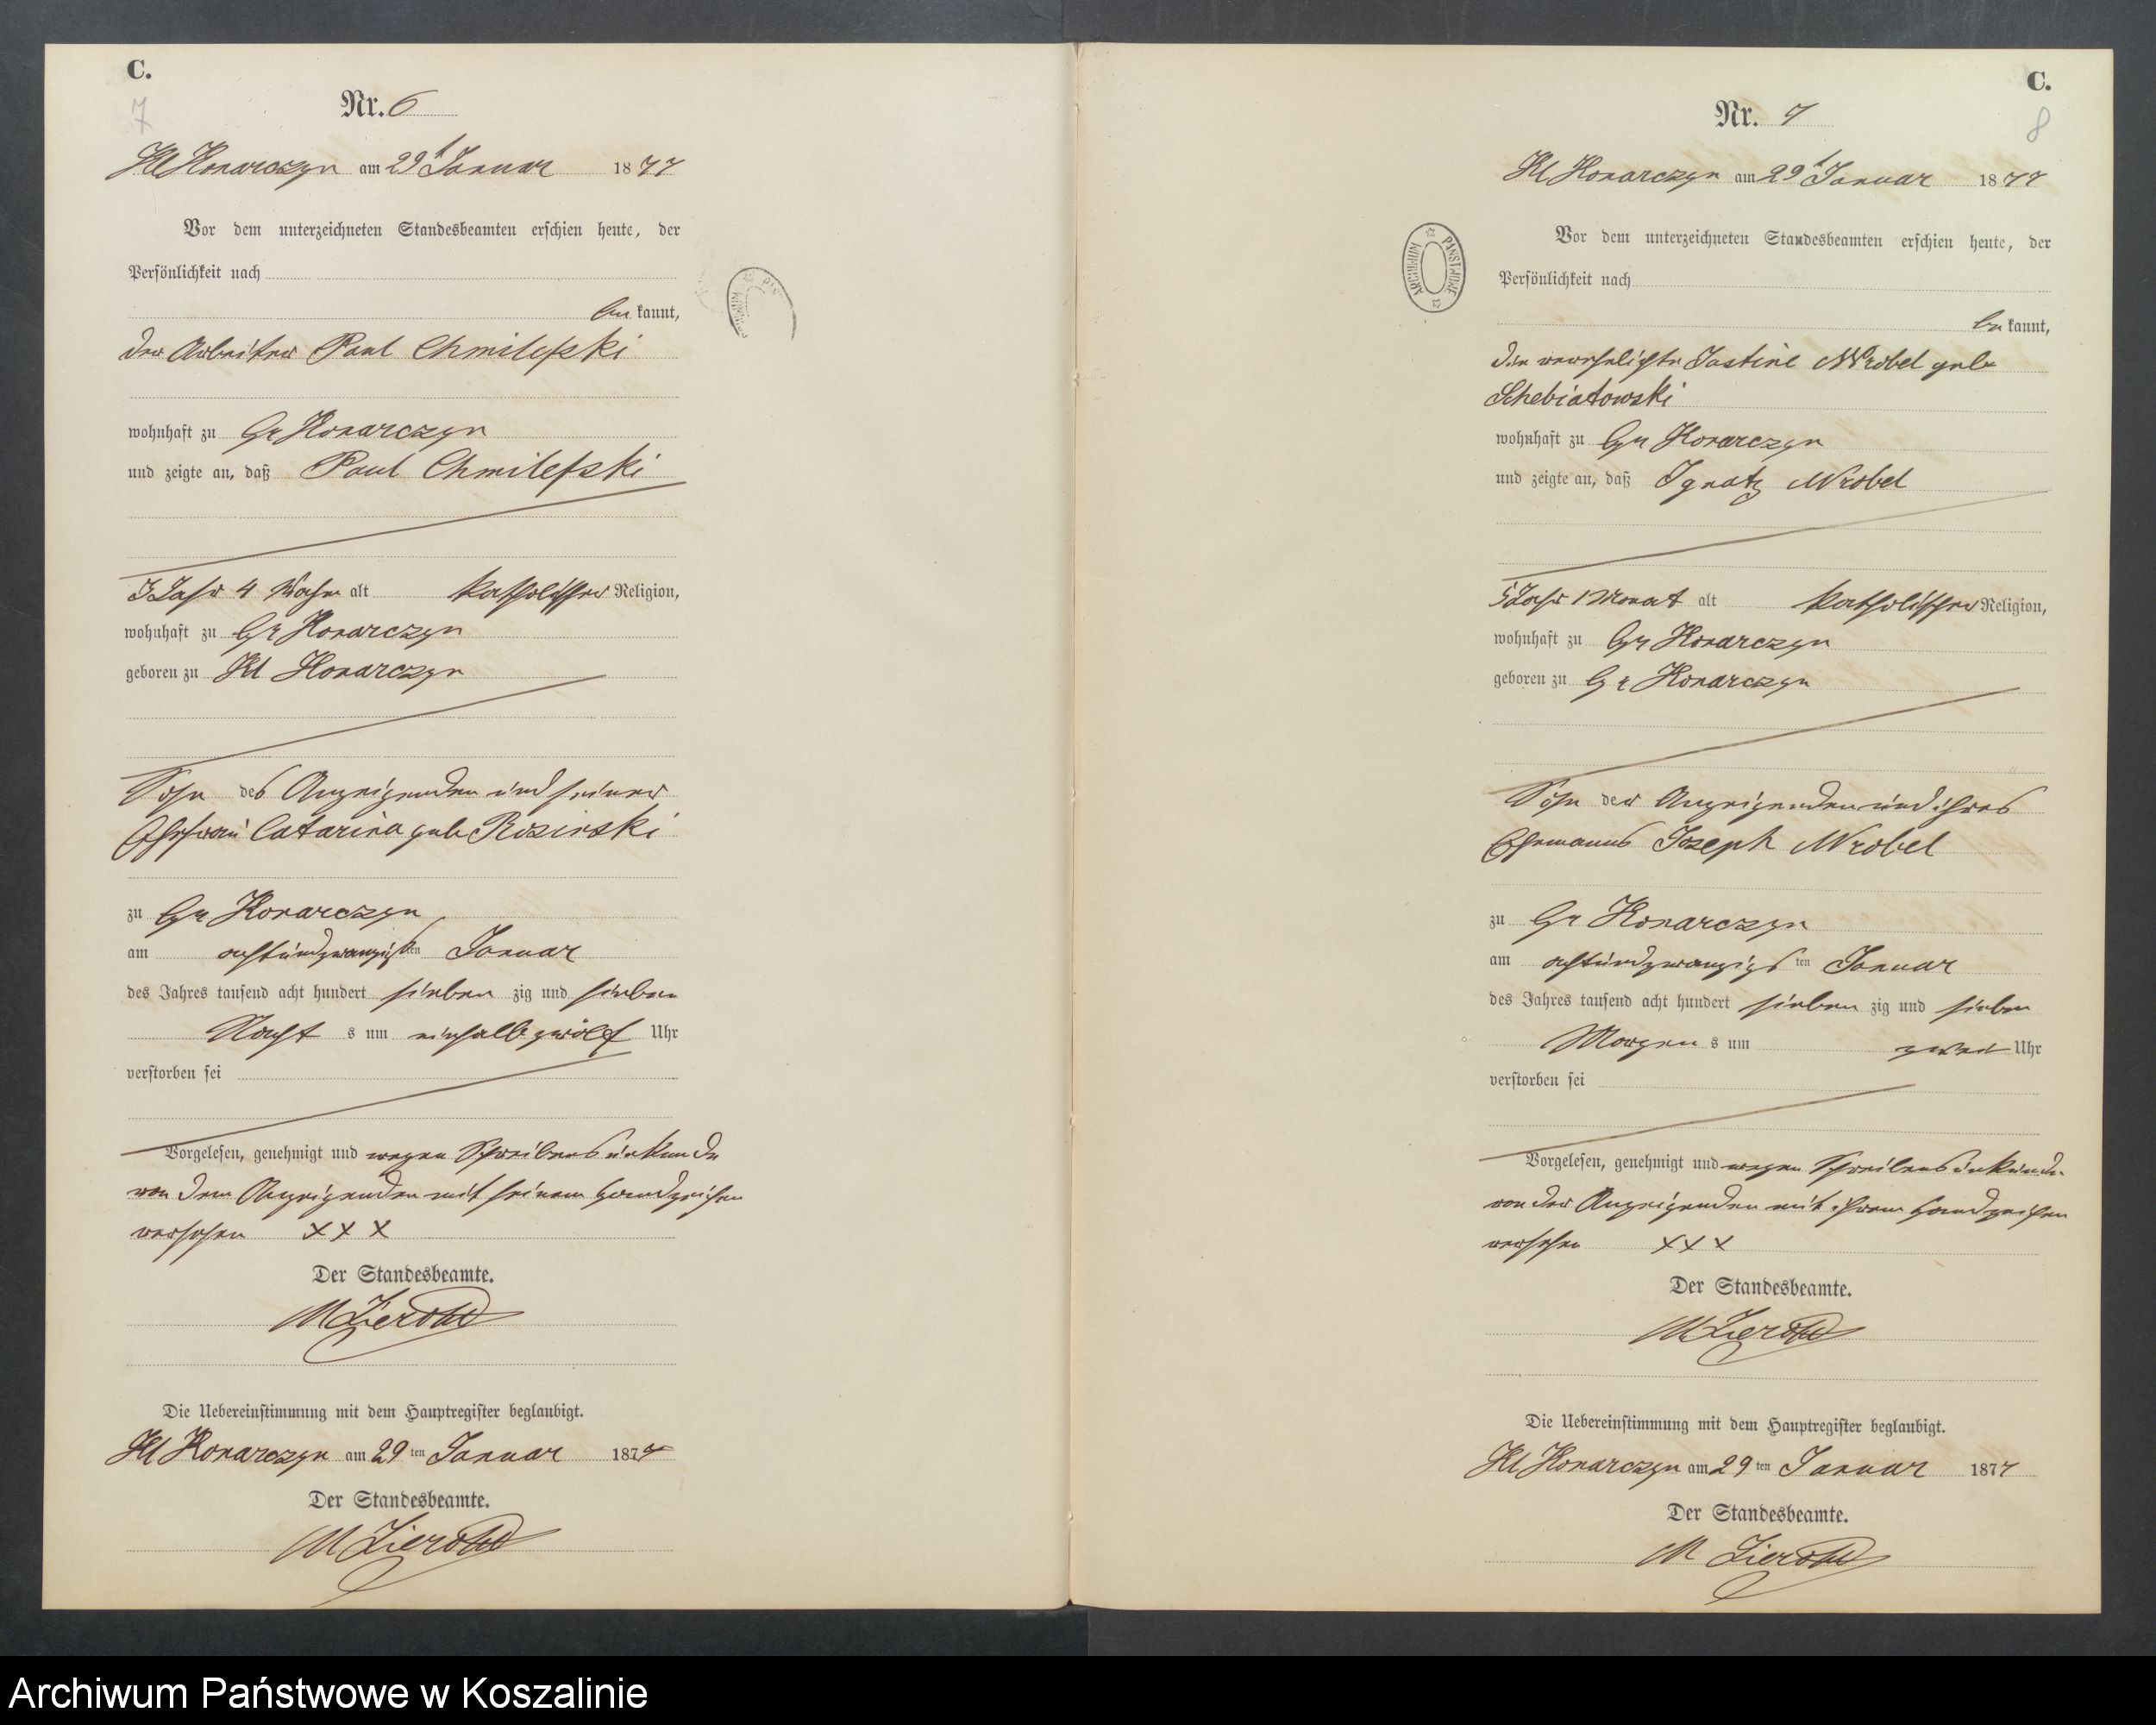 C.
7
Nr. 6
Kl Konarczyn am 29t Januar 1877
Vor dem unterzeichneten Standesbeamten erschien heute, der
Persönlichkeit nach
be kannt,
der Arbeiter Paul Chmilefski
wohnhaft zu Gr Konarczyn
und zeigte an, daß Paul Chmilefski
3 Jahr 4 Wochen alt katholischer Religion,
wohnhaft zu Gr Konarczyn
geboren zu Kl Konarczyn
Sohn des Anzeigenden und seiner
Ehefrau Catarina geb Rosinski
zu Gr Konarczyn
am achtundzwanzigsten Januar
des Jahres tausend acht hundert sieben zig und sieben
Nacht s um einhalb zwölf Uhr
verstorben sei
Vorgelesen, genehmigt und wegen Schreibensunkunde
von dem Anzeigenden mit seinem Handzeichen
versehen XXX
Der Standesbeamte.
Die Uebereinstimmung mit dem Hauptregister beglaubigt.
Kl Konarczyn am 29 ten Januar 1877
Der Standesbeamte.
C.
8
Nr. 7
Kl Konarczyn am 29t Januar 1877
ARCHIWUM PAŃSTWOWE
Vor dem unterzeichneten Standesbeamten erschien heute, der
Persönlichkeit nach
be kannt,
die verehelichte Justine Wrobel geb
Schebiatowski
wohnhaft zu Gr Konarczyn
und zeigte an, daß Ignatz Wrobel
5 Jahr 1 Monat alt katholischer Religion,
wohnhaft zu Gr Konarczyn
geboren zu Gr Konarczyn
Sohn der Anzeigenden und ihres
Ehemanns Joseph Wrobel
zu Gr Konarczyn
am achtundzwanzigs ten Januar
des Jahres tausend acht hundert sieben zig und sieben
Morgen s um zwei Uhr
verstorben sei
Vorgelesen, genehmigt und wegen Schreibensunkunde
von der Anzeigenden mit ihrem Handzeichen
versehen XXX
Der Standesbeamte.
Die Uebereinstimmung mit dem Hauptregister beglaubigt.
Kl Konarczyn am 29 ten Januar 1877
Der Standesbeamte.
Archiwum Państwowe w Koszalinie